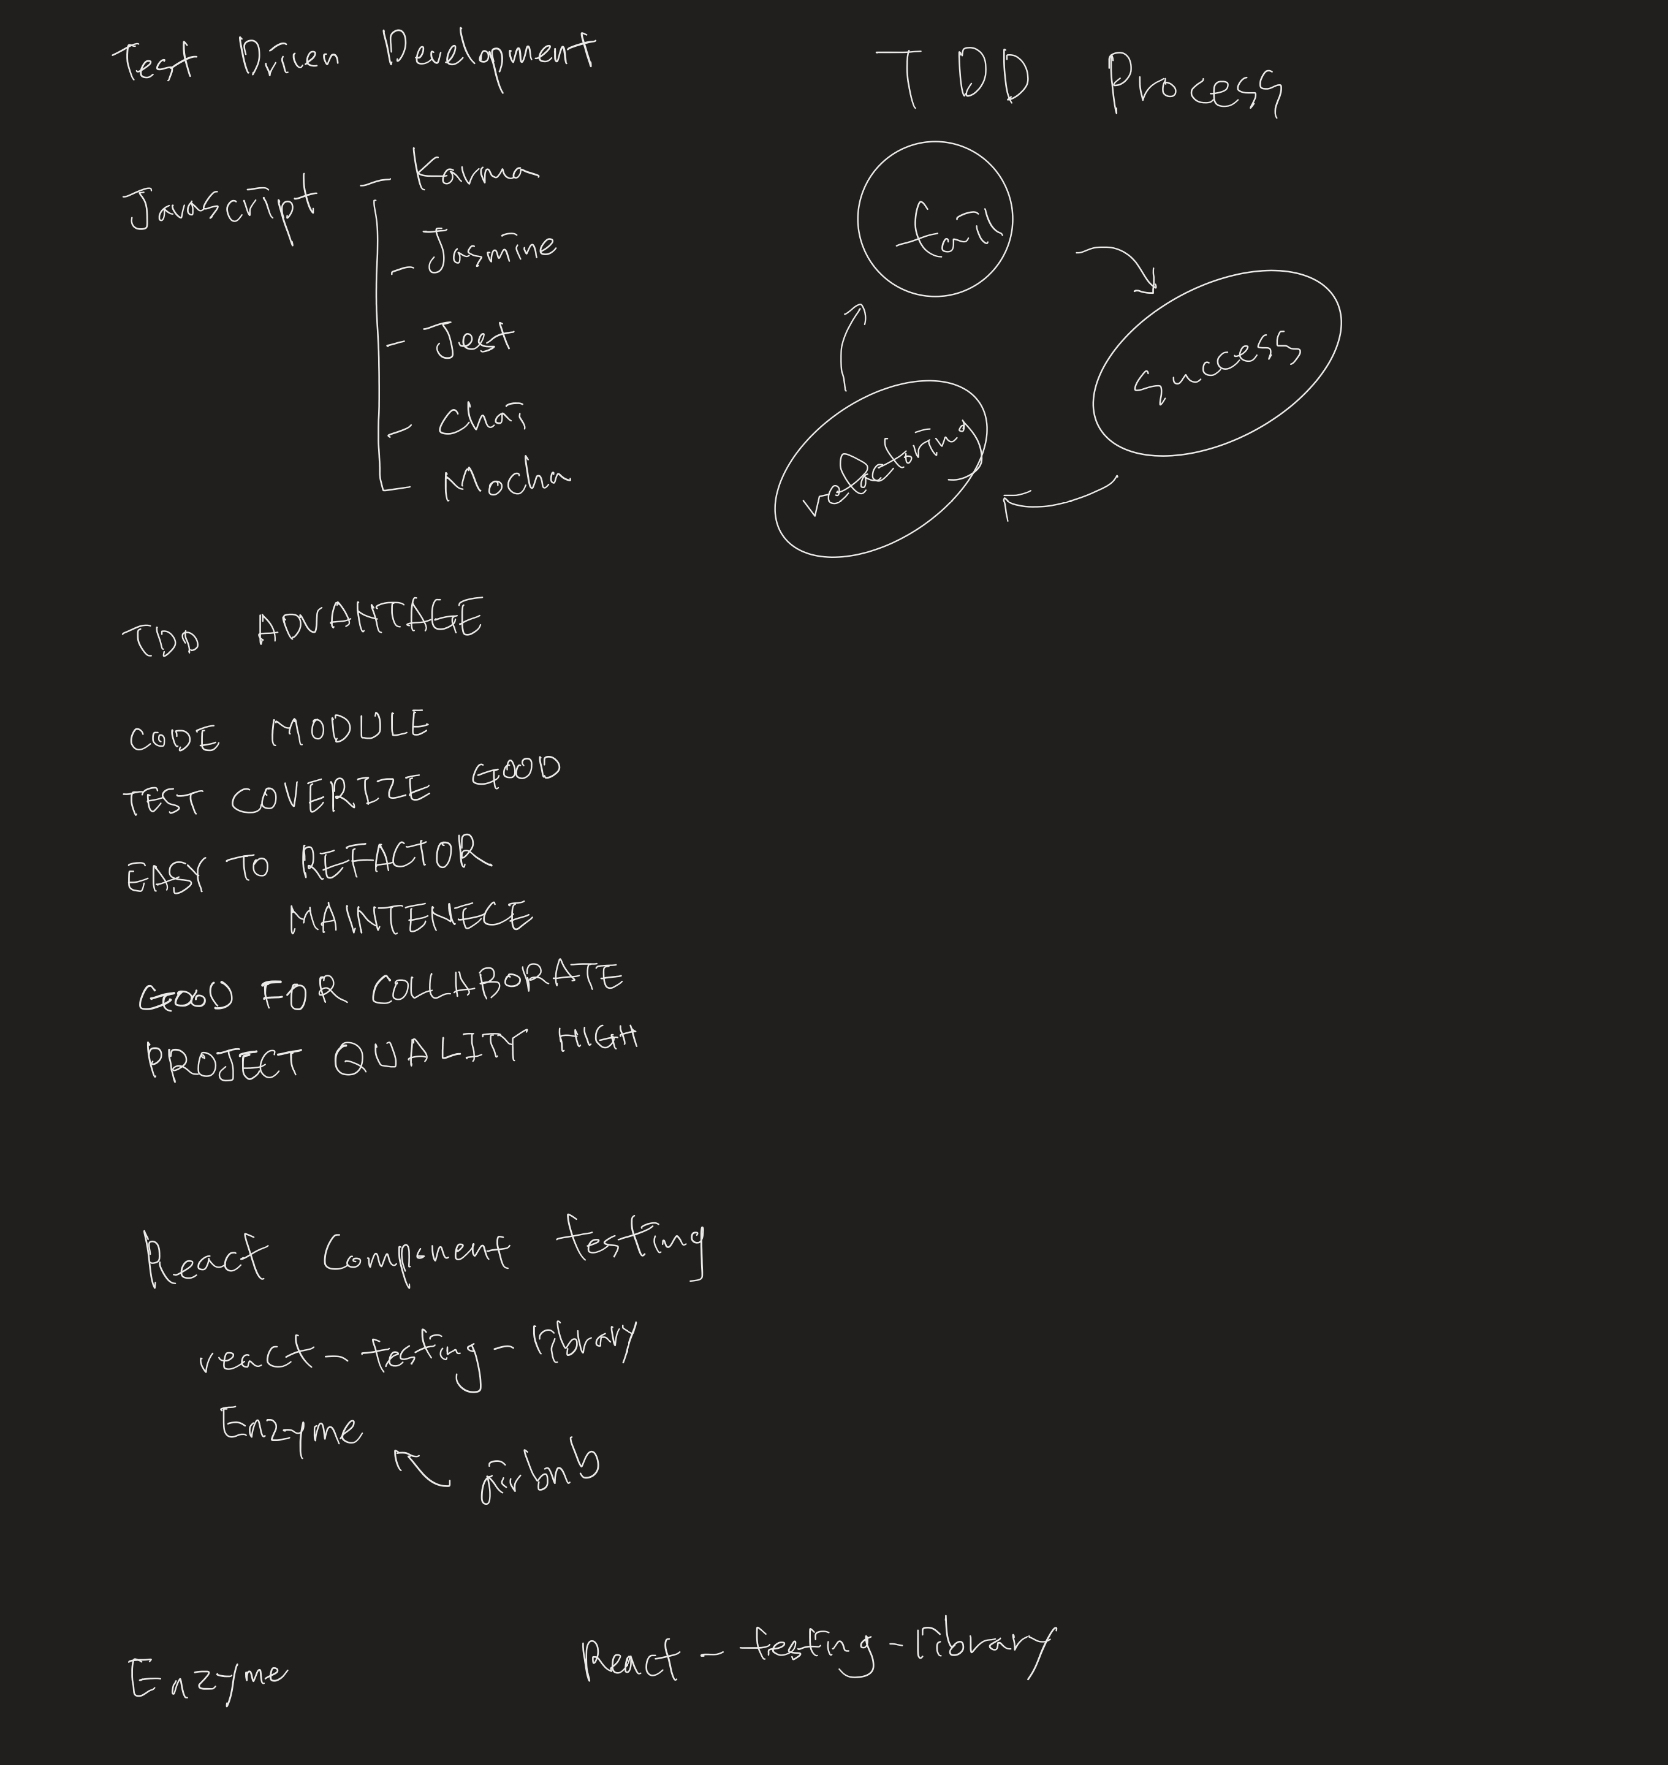 Test Driven Development
Javascript - Karma
- Jasmine
- Jest
- Chai
Mocha
TDD Process
fail
success
refactoring
TDD ADVANTAGE
CODE MODULE
TEST COVERIZE GOOD
EASY TO REFACTOR
MAINTENECE
GOOD FOR COLLABORATE
PROJECT QUALITY HIGH
React Component testing
react-testing-library
Enzyme
airbnb
Enzyme
React-testing-library